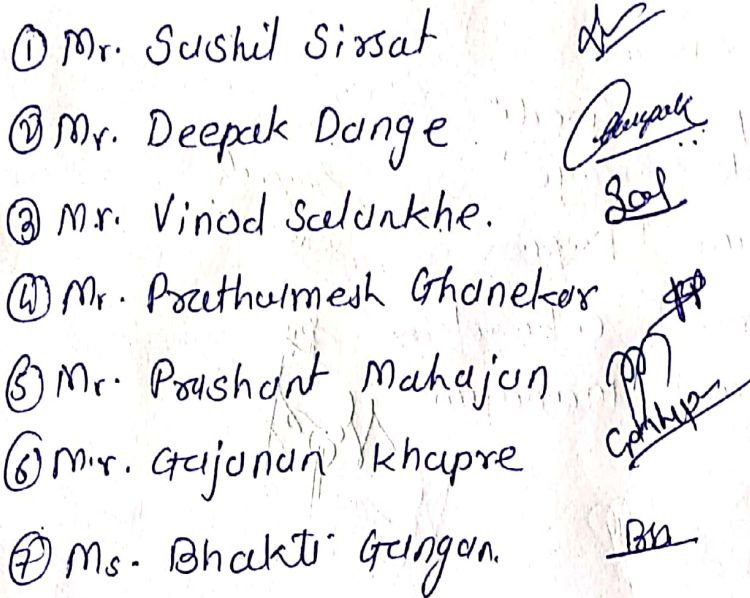 ① Mr. Sushil Sirsat
② Mr. Deepak Dange
③ Mr. Vinod Salunkhe.
④ Mr. Prathamesh Ghanekar
⑤ Mr. Prashant Mahajan
⑥ Mr. Gajanan Khapre
⑦ Ms. Bhakti Gangan.